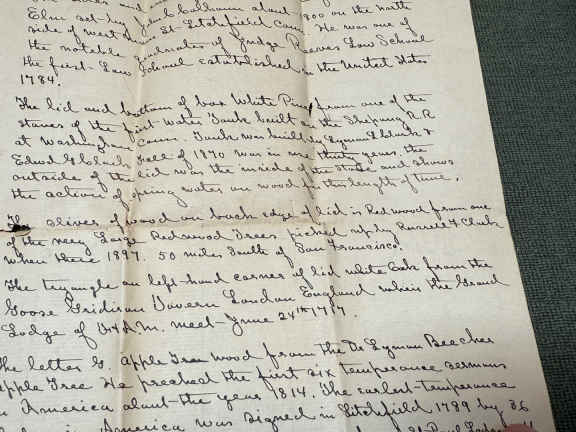 Elm set by John C Calhoun about 1800 on the north
side of West St Litchfield Conn. He was one of
the notable graduates of Judge Reeves Law School
the first Law School established in the United States
1784.
The lid and bottom of box White Pine from one of the
staves of the first Water Tank built on the Shepaug R.R
at Washington Conn. Tank was built by Lyman Clark &
Edwd N Clark Fall of 1870 was in use thirty years, the
outside of the lid was the inside of the stave and shows
the action of spring water on wood for this length of time.
The slivers of wood on back edge of lid is Redwood from one
of the very Large Redwood Trees picked up by Russell F Clark
when there 1897. 50 miles South of San Francisco.
The tryangle on left hand corner of lid white Oak from the
Goose Gridiron Tavern London England where the Grand
Lodge of F&A.M. meet June 24th 1717.
The letter G. apple Tree wood from the Dr Lyman Beecher
apple Tree He preached the first six temperance sermons
in America about the year 1814. The earlest temperance
in America was signed in Litchfield 1789 by 36
St Paul